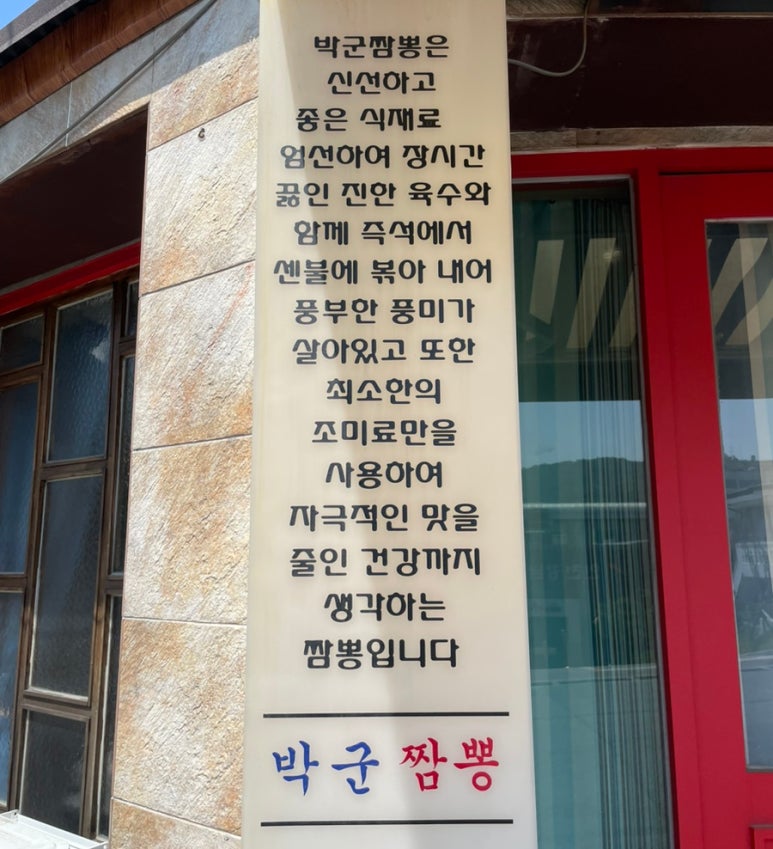 박군짬뽕은
신선하고
좋은 식재료
엄선하여 장시간
끓인 진한 육수와
함께 즉석에서
센불에 볶아 내어
풍부한 풍미가
살아있고 또한
최소한의
조미료만을
사용하여
자극적인 맛을
줄인 건강까지
생각하는
짬뽕입니다
박군짬뽕